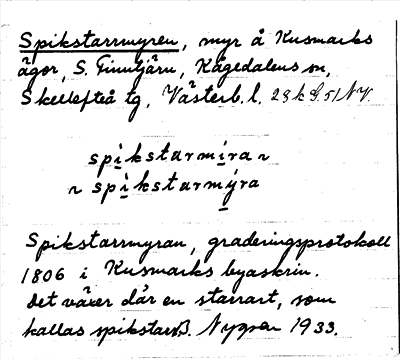 Spikstarrmyren, myr å Kusmarks
ägor, S. Finntjärn, Kågedalens sn,
Skellefteå tg, Västerb. l. 23k S. 51 NV.
spikstarmíra ~
~ spikstarmýra
Spikstarrmyran, graderingsprotokoll
1806 i Kusmarks byaskrin.
Det växer där en starrart, som
kallas spikstarr. B. Nygren 1933.